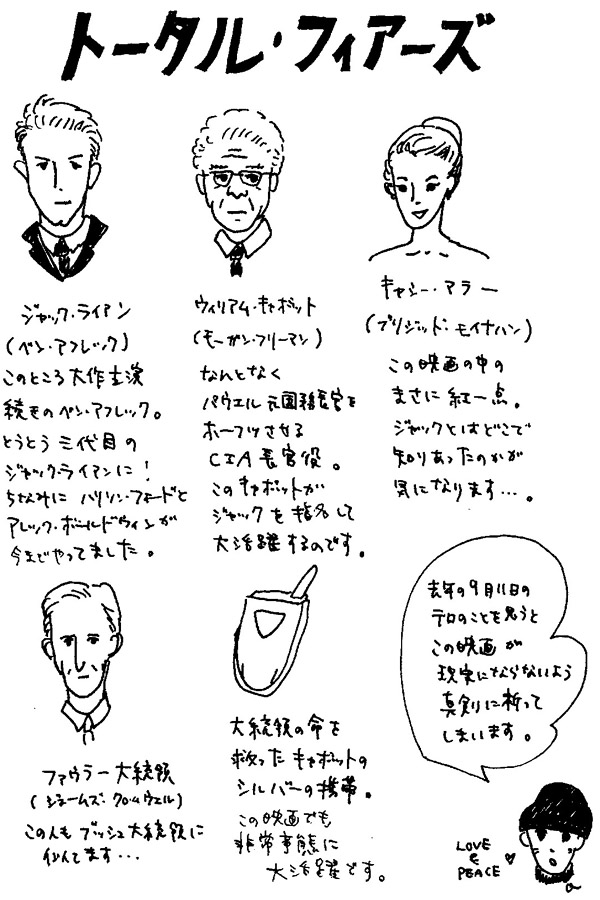 トータル・フィアーズ
ジャック・ライアン
(ベン・アフレック)
このところ大作主演
続きのベン・アフレック。
とうとう三代目の
ジャックライアンに!
ちなみに ハリソン・フォードと
アレック・ボールドウィンが
今までやってました。
ウィリアム・キャボット
(モーガン・フリーマン)
なんとなく
パウエル元国務長官を
ホーフツさせる
CIA長官役。
このキャボットが
ジャックを指名して
大活躍するのです。
キャシー・マラー
(ブリジッド・モイナハン)
この映画の中の
まさに紅一点。
ジャックとはどこで
知りあったのかが
気になります…。
ファウラー大統領
(ジェームズ・クロムウェル)
この人もブッシュ大統領に
似てます…
大統領の命を
救ったキャボットの
シルバーの携帯。
この映画でも
非常事態に
大活躍です。
去年の9月11日の
テロのことを思うと
この映画が
現実にならないよう
真剣に祈って
しまいます。
LOVE
&
PEACE